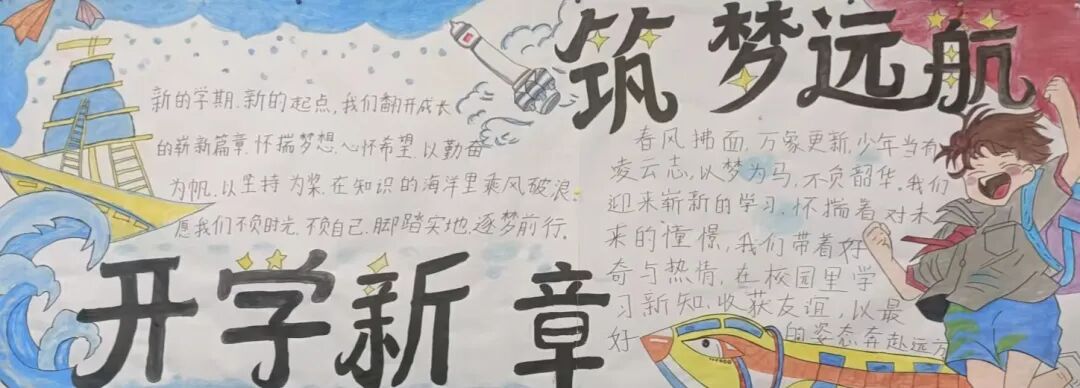 筑梦远航
新的学期.新的起点,我们翻开成长
的崭新篇章.怀揣梦想.心怀希望.以勤奋
为帆.以坚持为桨.在知识的海洋里乘风破浪.
愿我们不负时光.不负自己.脚踏实地.逐梦前行.
春风拂面,万象更新,少年当有
凌云志,以梦为马,不负韶华。我们
迎来崭新的学习.怀揣着对未
来的憧憬,我们带着好
奇与热情,在校园里学
习新知.收获友谊,以最
好的姿态.奔赴远方
开学新章